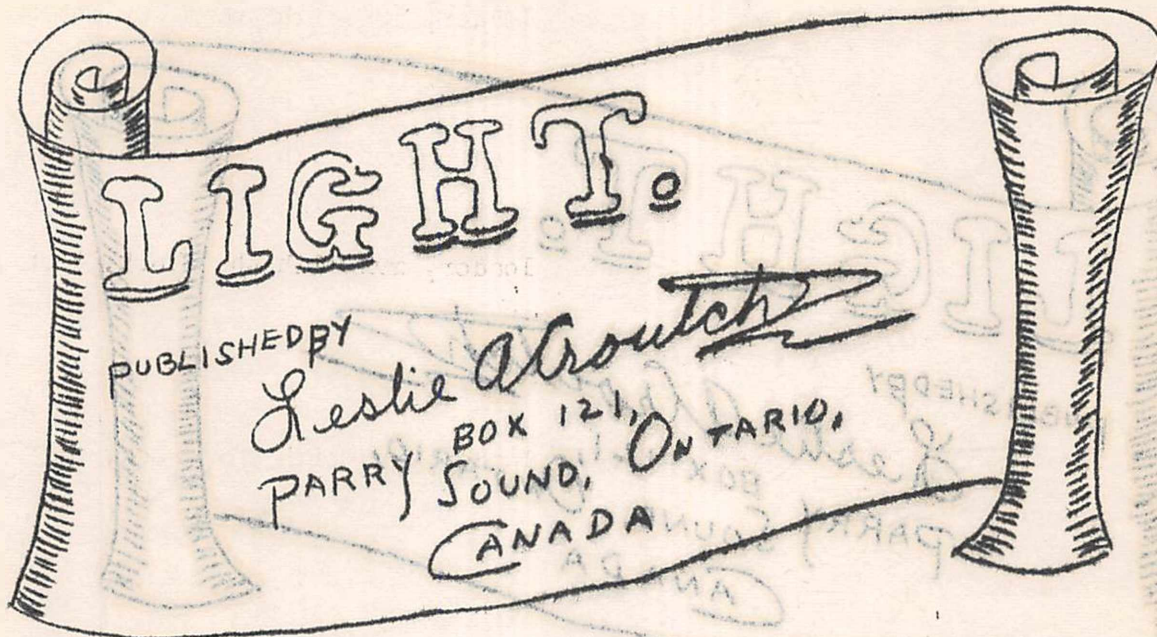 LIGHT.
PUBLISHED BY
Leslie A Croutch
BOX 121,
PARRY SOUND, ONTARIO,
CANADA